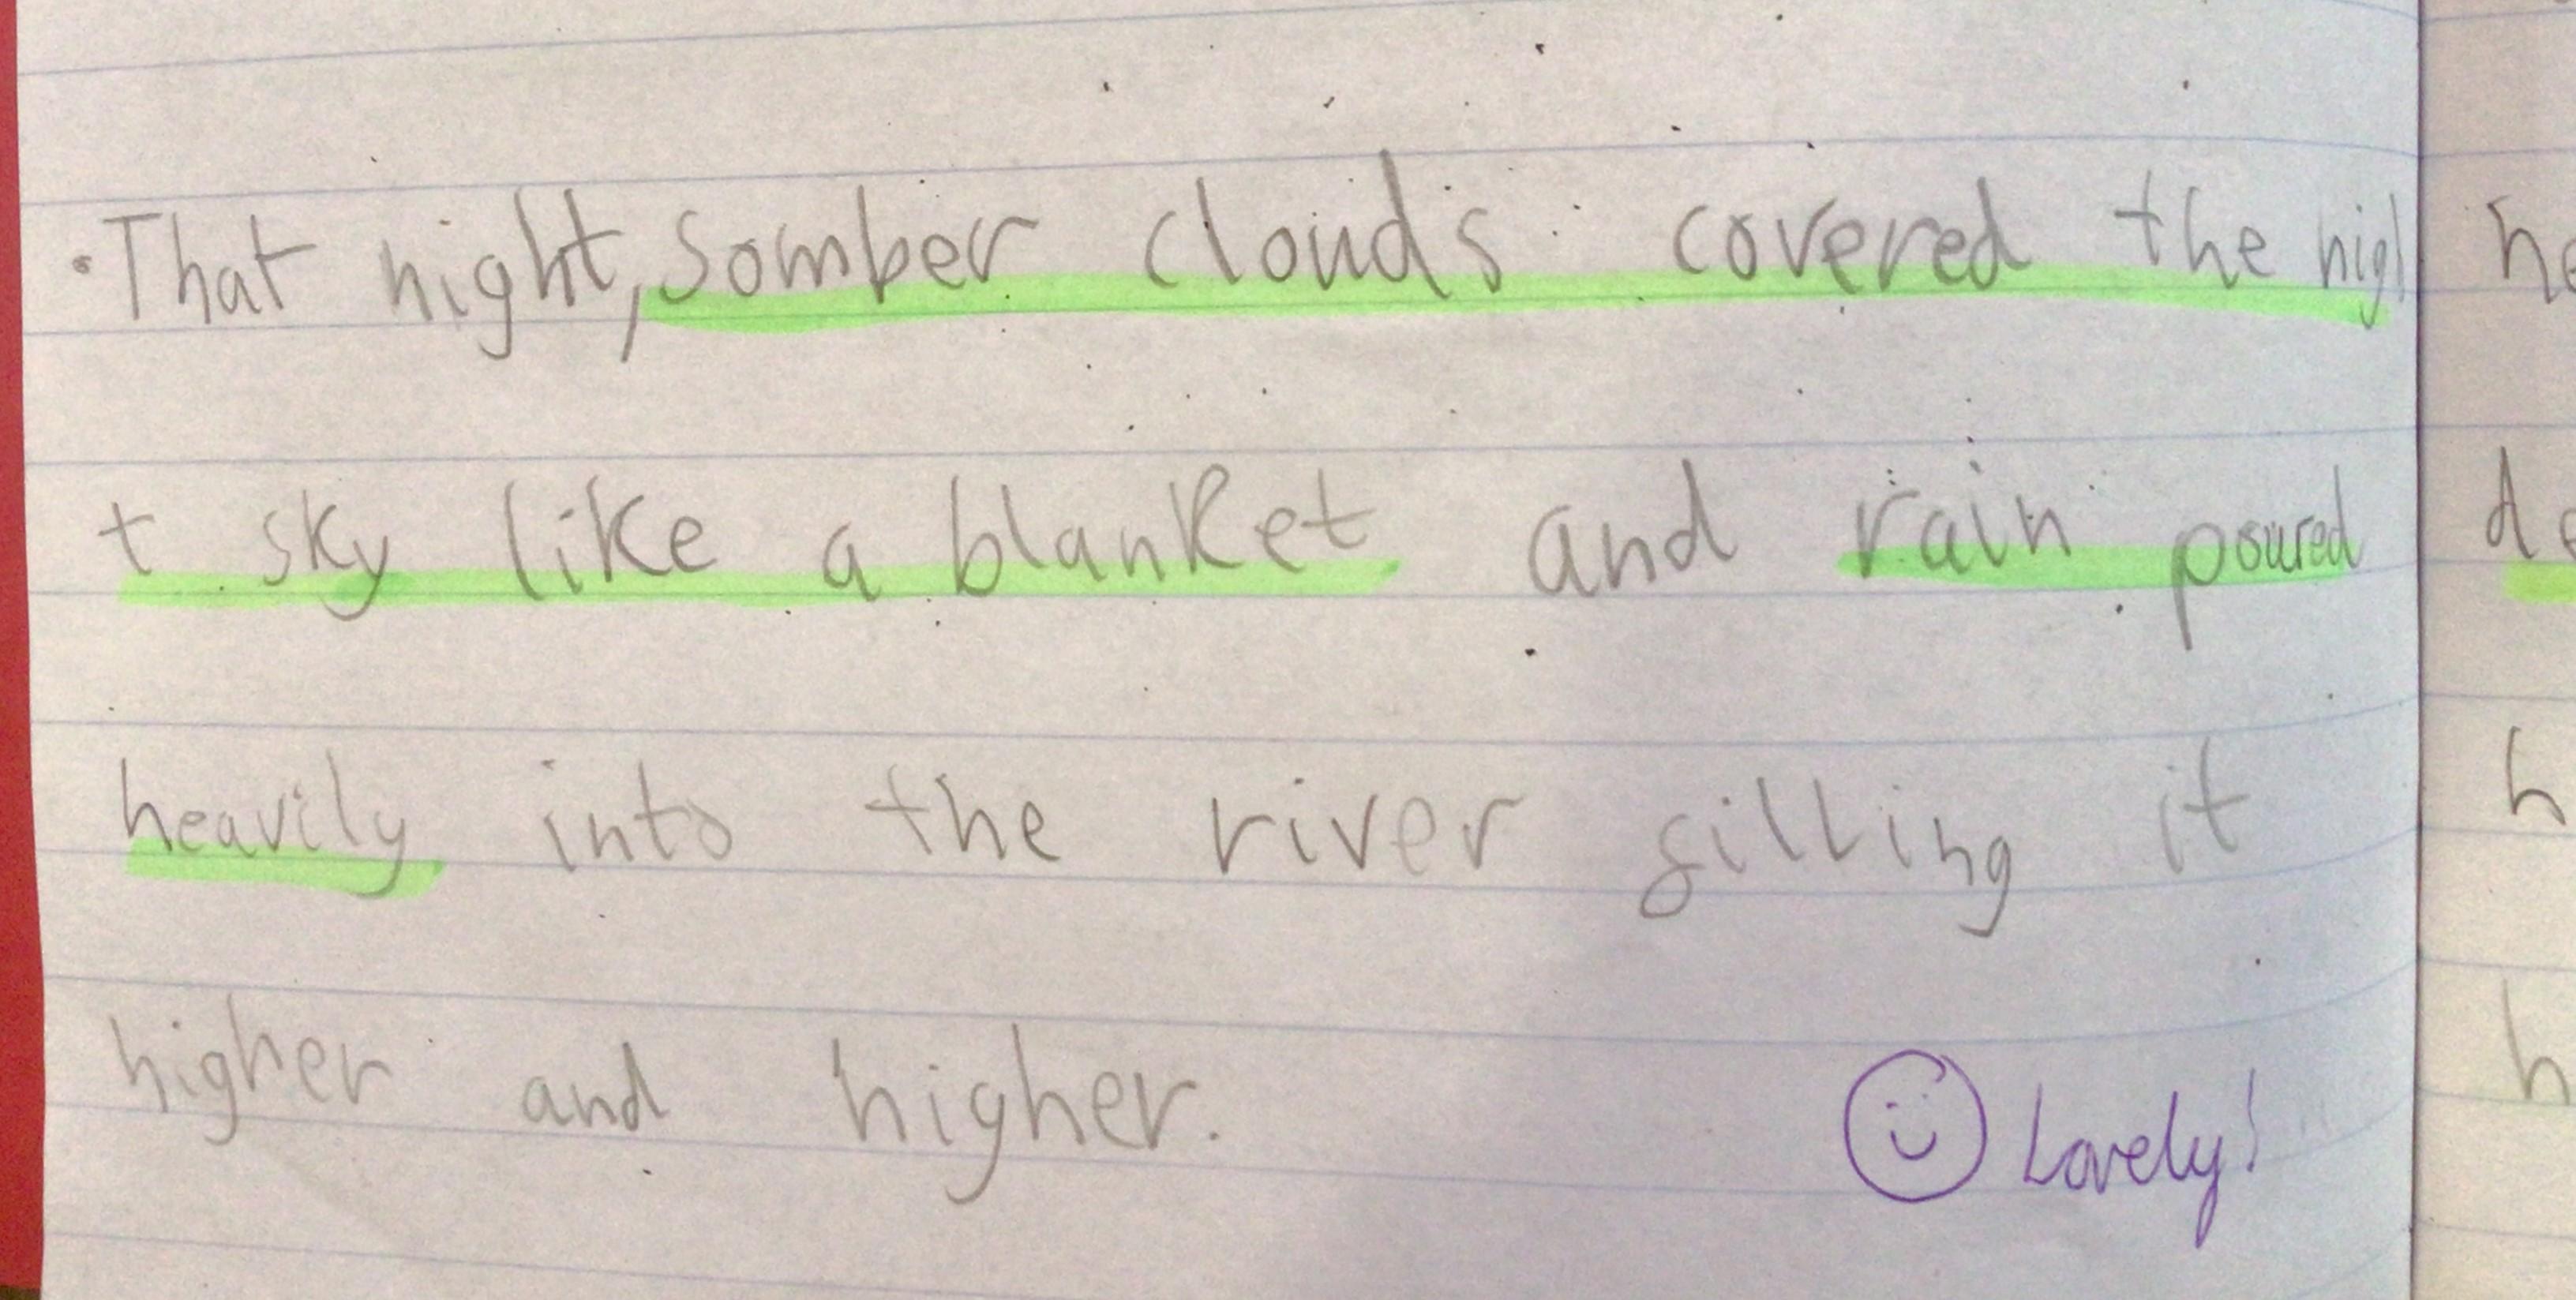 • That night, somber clouds covered the nigh
t sky like a blanket and rain poured
heavily into the river filling it
higher and higher.
Lovely!